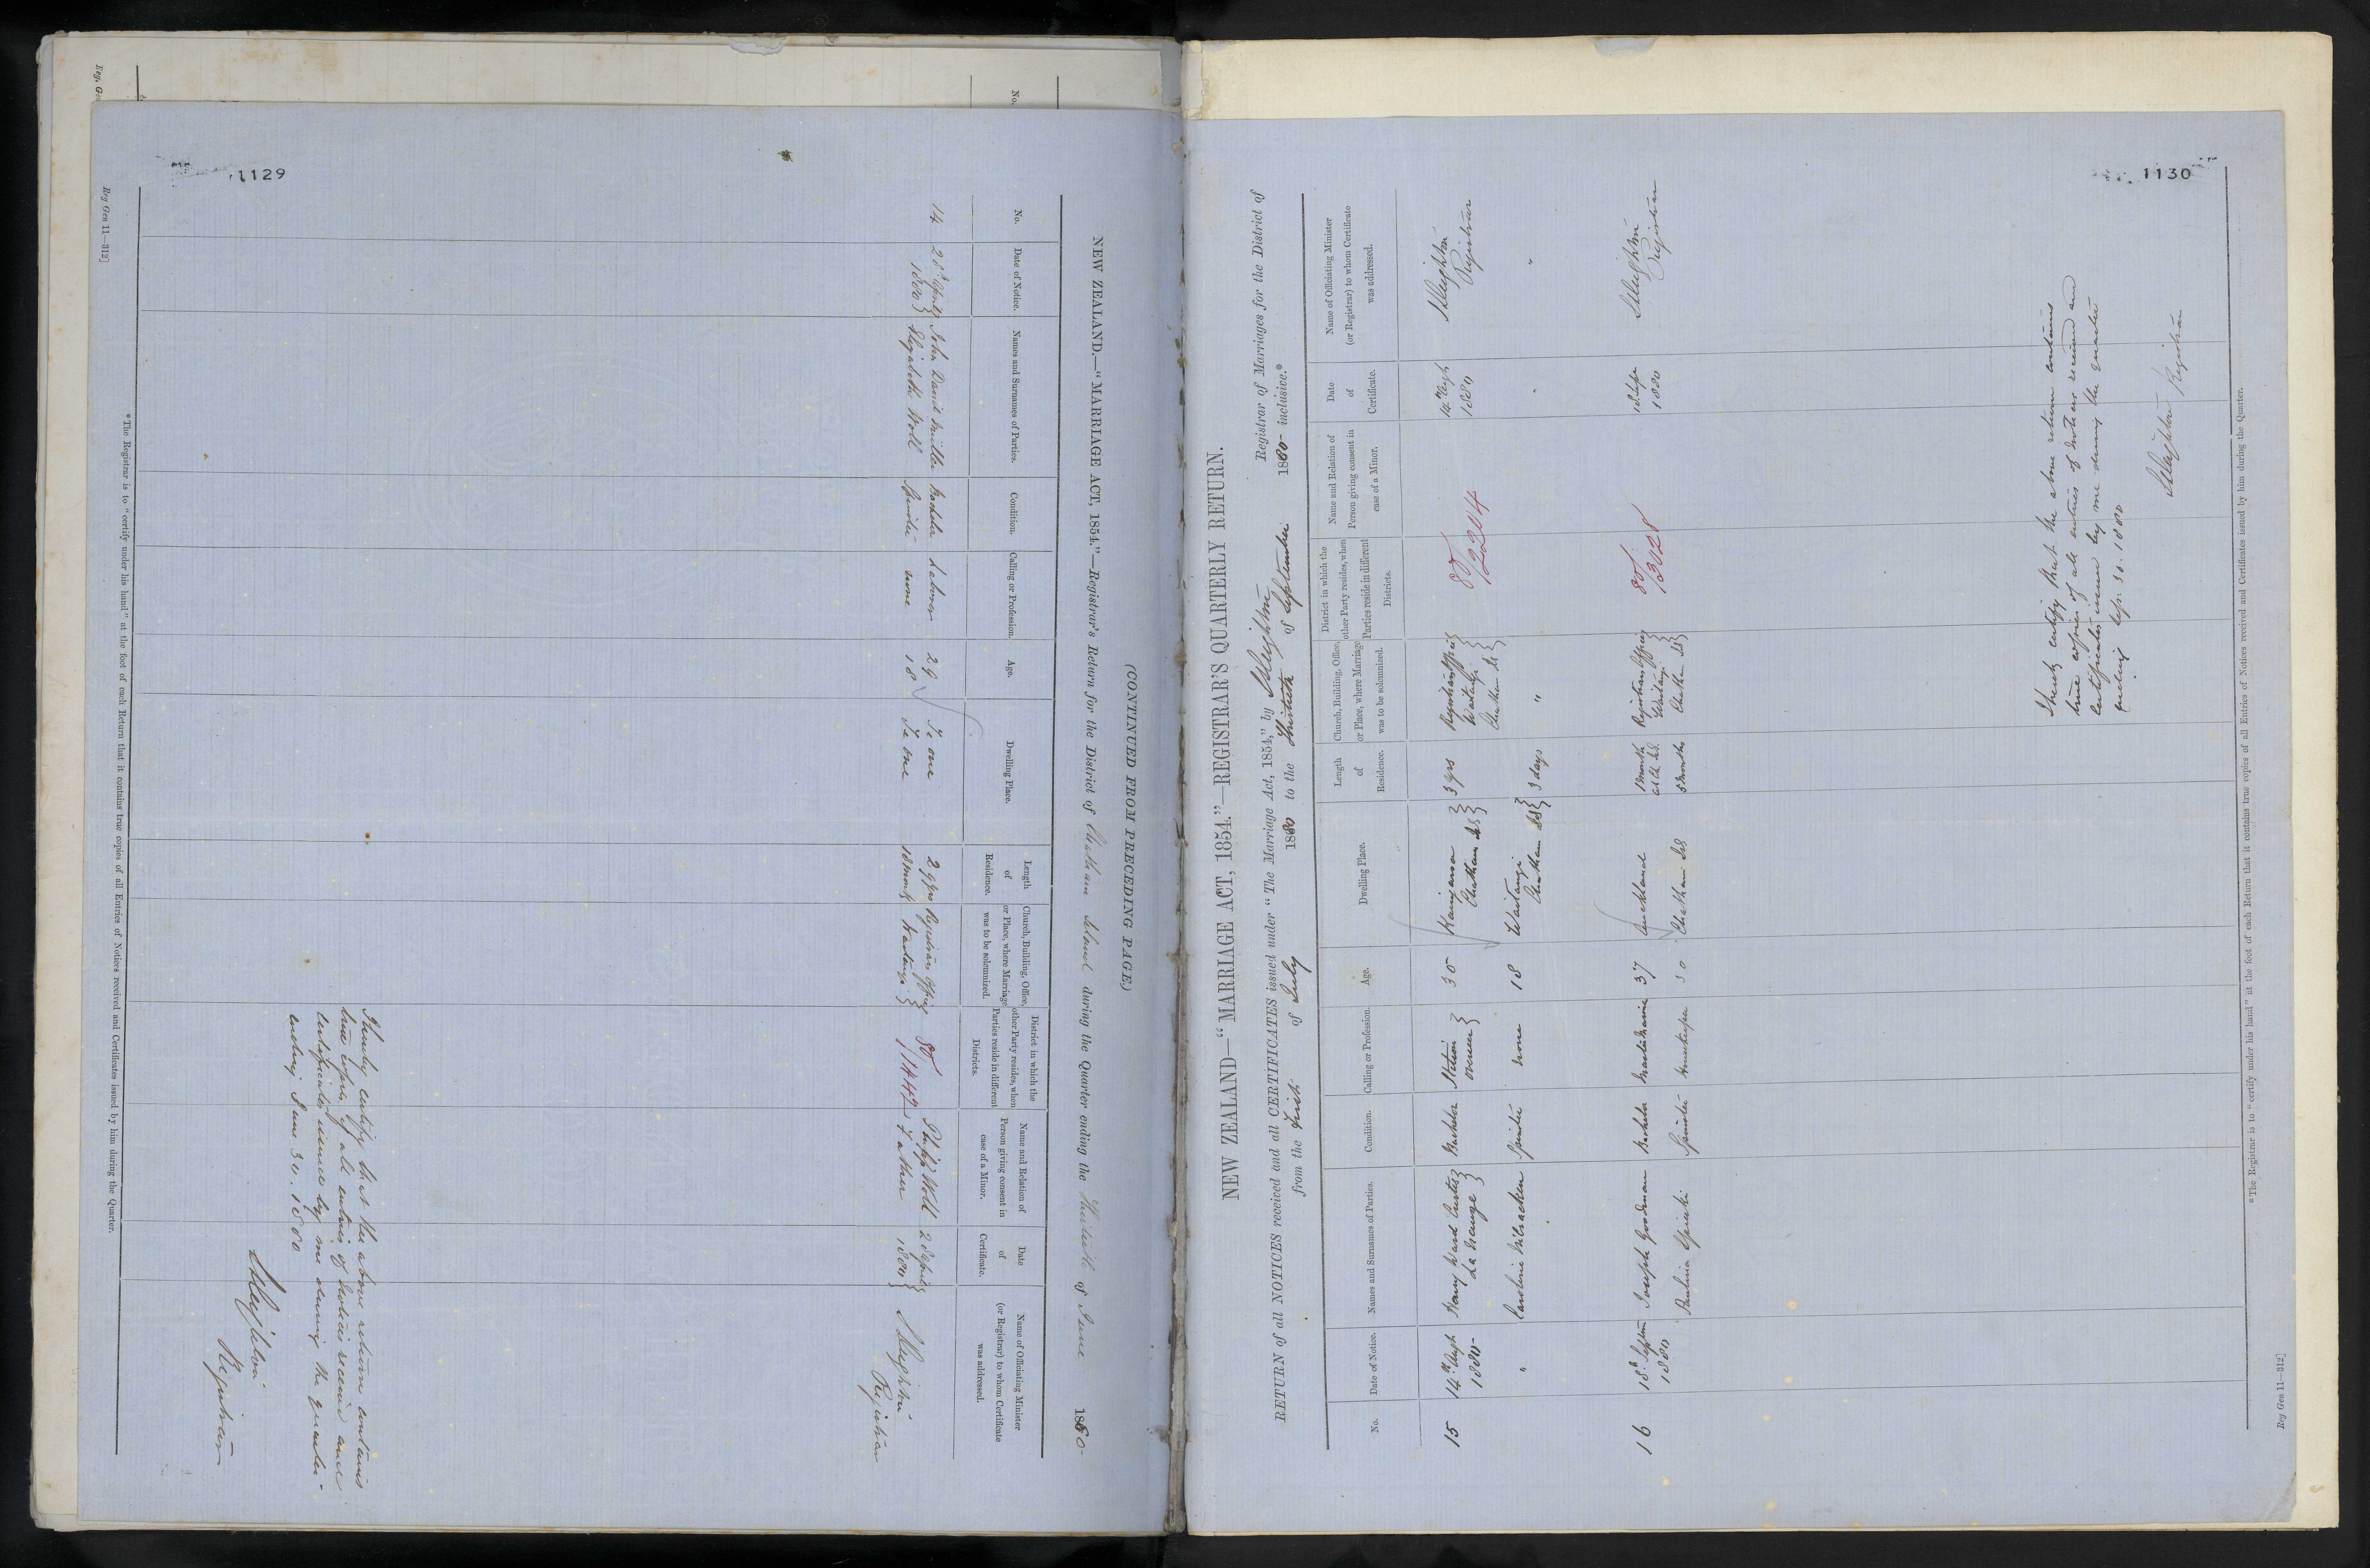 1129
(CONTINUED FROM PRECEDING PAGE.)
NEW ZEALAND.—"MARRIAGE ACT, 1854."—Registrar's Return for the District of Chatham Island during the Quarter ending the Thirtieth of June 1880-
No.
Date of Notice.
Names and Surnames of Parties.
Condition.
Calling or Profession.
Age.
Dwelling Place.
Length of Residence.
Church, Building, Office, or Place, where Marriage was to be solemnized.
District in which the other Party resides, when Parties reside in different Districts.
Name and Relation of Person giving consent in case of a Minor.
Date of Certificate.
Name of Officiating Minister (or Registrar) to whom Certificate was addressed.
14 28th April 1880 } John David Bachelor Laborer 29 Te one 29 yrs Registrars Office 80 Philip Woll 28 April S Deighton
Elizabeth Woll Spinster none 18 Te one 18 months Waitangi } /1442 Father 1880 } Registrar
I hereby certify that the above return contains
true copies of all entries of notices received and
certificates issued by me during the quarter-
ending June 30. 1880
S Deighton
Registrar
* The Registrar is to "certify under his hand" at the foot of each Return that it contains true copies of all Entries of Notices received and Certificates issued by him during the Quarter.
Reg Gen 11—312]
Reg. Gen
No.
1130
NEW ZEALAND—"MARRIAGE ACT, 1854."—REGISTRAR'S QUARTERLY RETURN.
RETURN of all NOTICES received and all CERTIFICATES issued under "The Marriage Act, 1854," by S Deighton Registrar of Marriages for the District of
from the First of July 1880 to the Thirtieth of September 1880- inclusive.*
No.
Date of Notice.
Names and Surnames of Parties.
Condition.
Calling or Profession.
Age.
Dwelling Place.
Length of Residence.
Church, Building, Office, or Place, where Marriage was to be solemnized.
District in which the other Party resides, when Parties reside in different Districts.
Name and Relation of Person giving consent in case of a Minor.
Date of Certificate.
Name of Officiating Minister (or Registrar) to whom Certificate was addressed.
15 14th Augt Harry Ward Bachelor Station 30 Kaingaroa } 3 yrs Registrars Office } 80 14th Augt S Deighton
1880- overseer } Chatham Isds } Waitangi } /2204 1880 Registrar
Chatham Is }
" Caroline Spinster none 18 Waitangi } 3 days " " "
Chatham Isd }
16 18th Septem Joseph Goodman Bachelor 37 Auckland 1 month Registrars Office } 80 18 Sepr S Deighton
1880 Waitangi } /3028 1880 Registrar
Paulina Spinster 30 Chatham Isds 5 months Chatham Is }
I hereby certify that the above return contains
true copies of all entries of notices received and
certificates issued by me during the quarter
ending Sep. 30. 1880
S Deighton Registrar
* The Registrar is to "certify under his hand" at the foot of each Return that it contains true copies of all Entries of Notices received and Certificates issued by him during the Quarter.
Reg Gen 11—312]